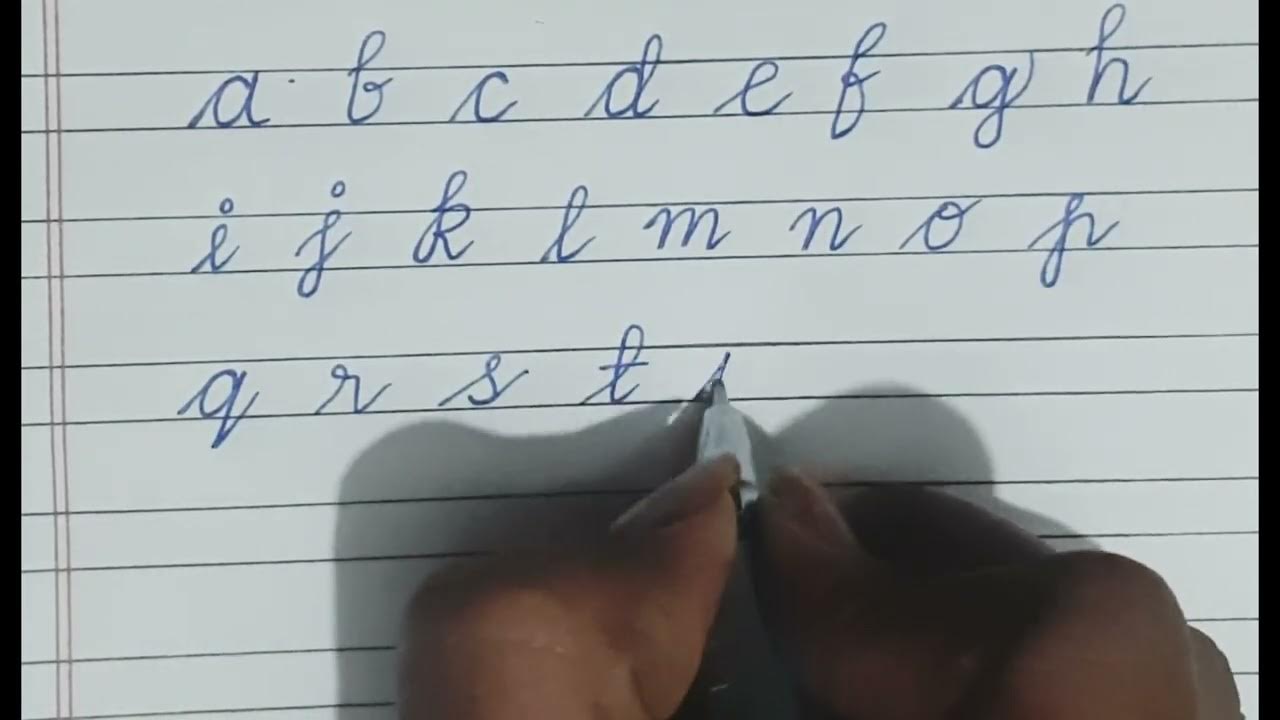 a b c d e f g h
i j k l m n o p
q r s t